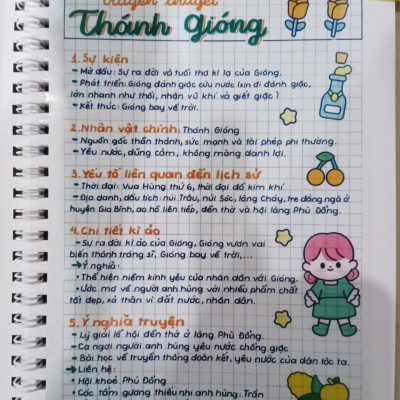 Truyền thuyết
Thánh Gióng
1. Sự kiện
- Mở đầu: Sự ra đời và tuổi thơ kì lạ của Gióng.
- Phát triển: Gióng đánh giặc cứu nước (xin đi đánh giặc,
lớn nhanh như thổi, nhận vũ khí và giết giặc)
- Kết thúc: Gióng bay về trời.
2. Nhân vật chính: Thánh Gióng
- Nguồn gốc thần thánh, sức mạnh và tài phép phi thường.
- Yêu nước, dũng cảm, không màng danh lợi.
3. Yếu tố liên quan đến lịch sử
- Thời đại: Vua Hùng thứ 6, thời đại đồ kim khí
- Địa danh, dấu tích: núi Trâu, núi Sóc, làng Cháy, tre đằng ngà ở
huyện Gia Bình, ao hồ liên tiếp, đền thờ và hội làng Phù Đổng.
4. Chi tiết kì ảo
- Sự ra đời kì ảo của Gióng, Gióng vươn vai
biến thành tráng sĩ, Gióng bay về trời,...
→ Ý nghĩa:
• Thể hiện niềm kính yêu của nhân dân với Gióng.
• Ước mơ về người anh hùng với nhiều phẩm chất
tốt đẹp, xả thân vì đất nước, nhân dân.
5. Ý nghĩa truyện
- Lý giải lễ hội đền thờ ở làng Phù Đổng.
- Ca ngợi người anh hùng yêu nước chống giặc
- Bài học về truyền thống đoàn kết, yêu nước của dân tộc ta.
→ Liên hệ:
• Hội khoẻ Phù Đổng
• Các tấm gương thiếu nhi anh hùng: Trần